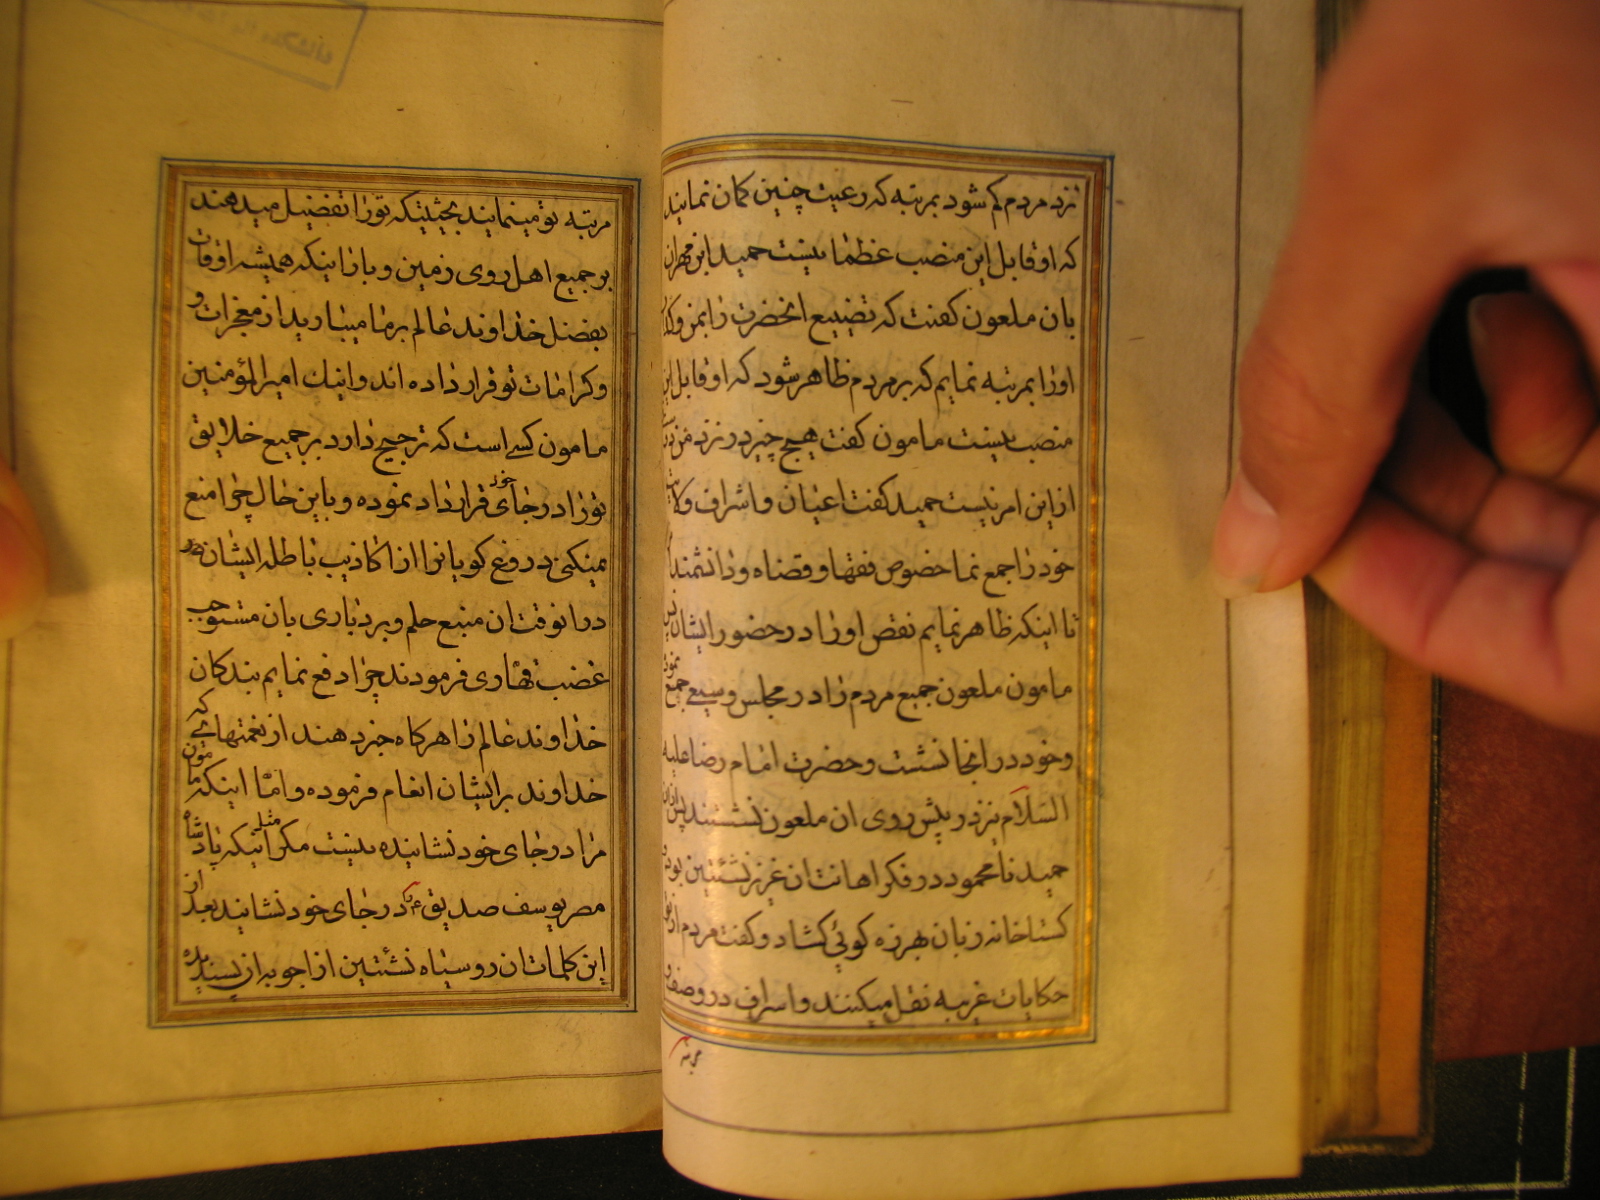 نزد مردم کم شود بمرتبه که رعیت چنین کمان نمایند
که او قابل این منصب عظما نیست حمید ابن مهران
بان ملعون کفت که تضییع انحضرت را بمن
اورا بمرتبه نمایم که بر مردم ظاهر شود که او قابل این
منصب نیست مامون کفت هیچ چیز در نزد من
از این امر نیست حمید کفت اعیان و اشراف
خود را جمع نما خصوص فقها و قضاه و دانشمندا
تا اینکه ظاهر نمایم نقص اورا در حضور ایشان پس
مامون ملعون جمیع مردم را در مجلس وسیعی جمع نمود
و خود در انجا نشست و حضرت امام رضا علیه
السلام نیز در پیش روی ان ملعون نشستند پس
حمید نامحمود در فکر اهانت ان عزیز نشئتین بود
کستاخانه زبان بهرزه کوئی کشاد و کفت مردم از تو
حکایات غریبه نقل میکنند و اسراف در وصف و
مرتبه
مرتبه تو مینمایند بحیثیتیکه تورا تفضیل میدهند
بر جمیع اهل روی زمین و بازا اینکه همیشه اوقات
بفضل خداوند عالم بر ما میبارید از معجزات و
و کرامات تو قرار داده اند و اینك امیر المؤمنین
مامون کسے است که ترجیح دارد بر جمیع خلایق
تورا در جای خود قرار داد نموده و باین حال چرا منع
میکنی دروغ کویانرا از اکاذیب باطله ایشان
در انوقت ان منبع حلم و بردباری بان مستوجب
غضب قهاری فرمودند چرا دفع نمایم بندکان
خداوند عالم را هرکاه خبر دهند از نعمتهائے که
خداوند بر ایشان انعام فرموده و اما اینکه مامون
مرا در جای خود نشانیده نیست مکر مثل اینکه پادشاه
مصر یوسف صدیق ع را در جای خود نشانید بعد از
این کلمات ان روسیاه نشئتین از اجوبه ان پسندیده